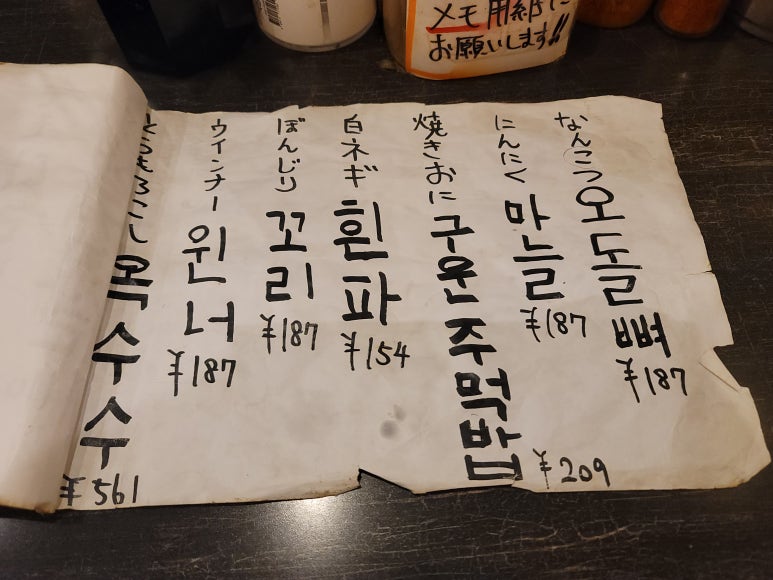 メモ用紙に
お願いします!!
なんこつ 오돌뼈 ¥187
にんにく 마늘 ¥187
焼きおに 구운주먹밥 ¥209
白ネギ 흰파 ¥154
ぼんじり 꼬리 ¥187
ウインナー 윈너 ¥187
とうもろこし 옥수수 ¥561